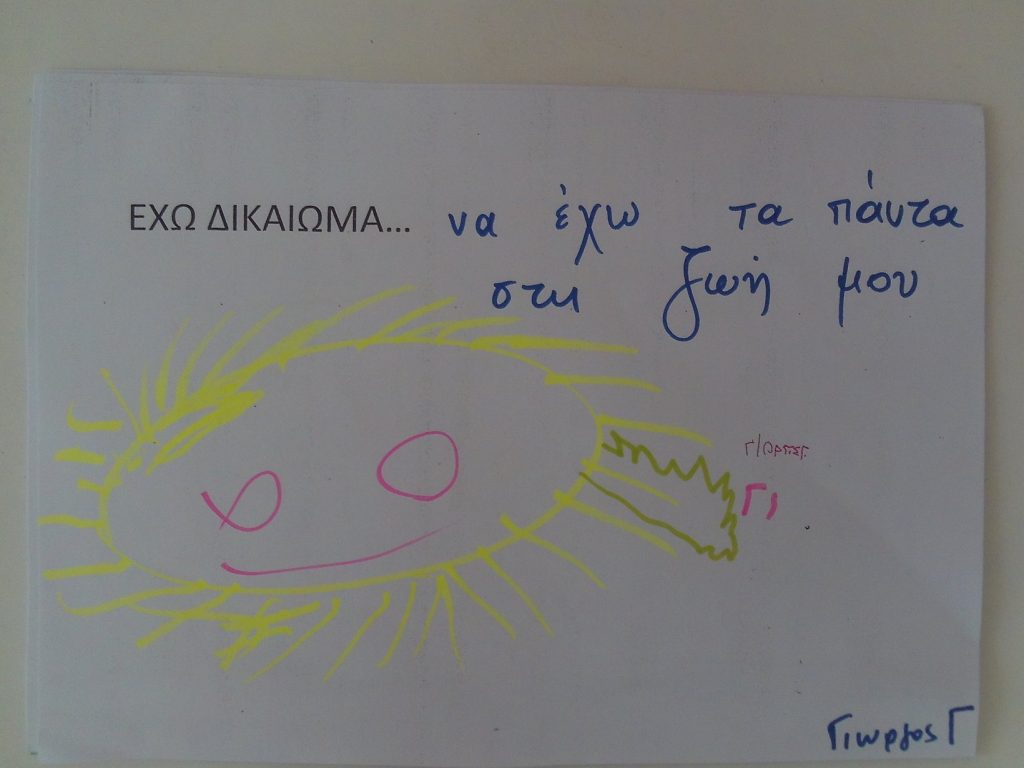 ΕΧΩ ΔΙΚΑΙΩΜΑ... να έχω τα πάντα
στη ζωή μου
Γι
Γιωργος Γ